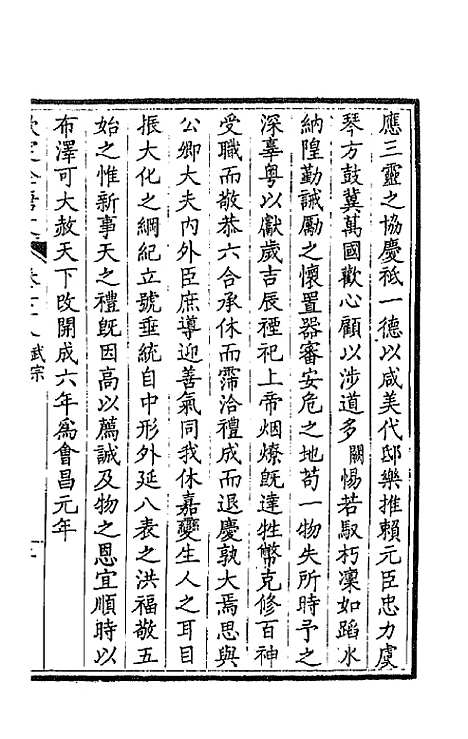 應三靈之協慶祗一德以咸美代邸樂推賴元臣忠力虞
琴方鼓冀萬國歡心顧以涉道多闕惕若馭朽凜如蹈水
納隍勤誡勵之懷置器審安危之地苟一物失所時予之
深辜粤以獻歲吉辰禋祀上帝烟燎既達牲幣克修百神
受職而敬恭六合承休而霈洽禮成而退慶孰大焉思與
公卿大夫内外臣庶導迎善氣同我休嘉變生人之耳目
振大化之綱紀立號垂統自中形外延八表之洪福敬五
始之惟新事天之禮既因高以薦誠及物之恩宜順時以
布澤可大赦天下改開成六年為會昌元年
欽定全唐文 卷七十八 武宗